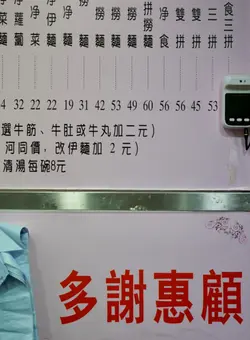 食三拼 53
雙拼 45
雙拼 56
淨食 56
拼撈麵 60
撈麵 49
撈麵 45
撈麵 42
撈麵 31
淨麵 19
淨伊麵 22
淨菜 22
蘿蔔 32
菜麵
選牛筋、牛肚或牛丸加二元）
河同價，改伊麵加 2 元）
清湯每碗8元
多謝惠顧